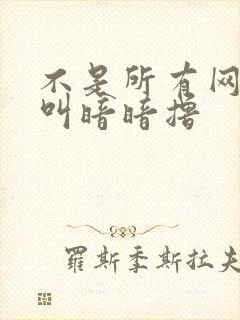 不是所有网
叫暗暗撸
罗斯季斯拉夫